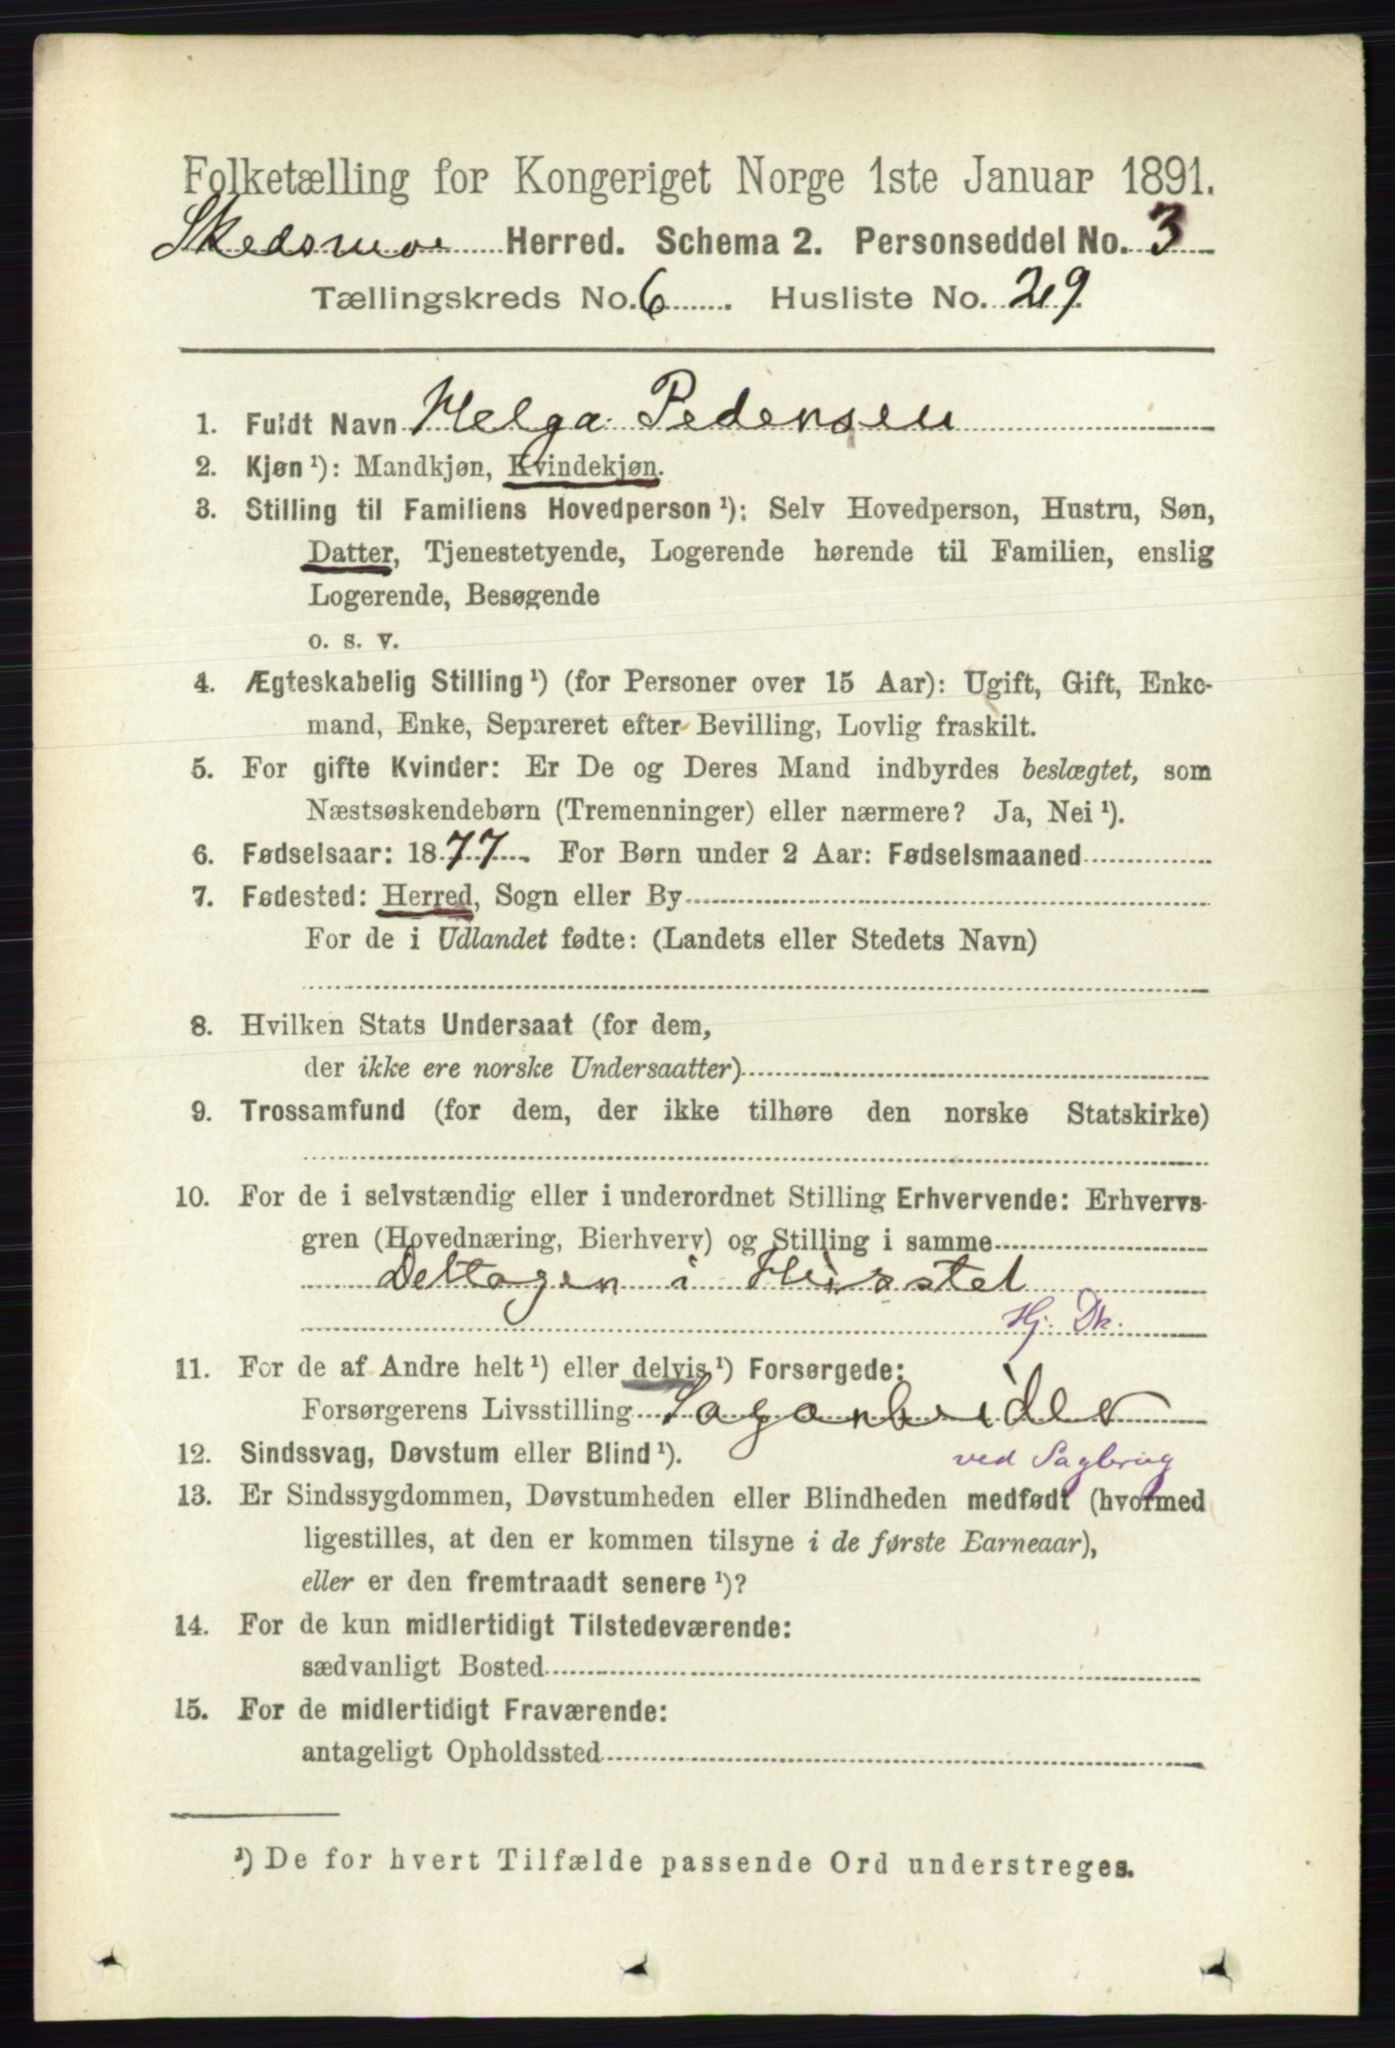 Folketælling for Kongeriget Norge 1ste Januar 1891.
Skedsmo Herred. Schema 2. Personseddel No. 3
Tællingskreds No. 6 Husliste No. 29
1. Fuldt Navn Helga Pedersen
2. Kjøn ¹): Mandkjøn, Kvindekjøn.
3. Stilling til Familiens Hovedperson ¹): Selv Hovedperson, Hustru, Søn,
Datter, Tjenestetyende, Logerende hørende til Familien, enslig
Logerende, Besøgende
o. s. v.
4. Ægteskabelig Stilling ¹) (for Personer over 15 Aar): Ugift, Gift, Enke-
mand, Enke, Separeret efter Bevilling, Lovlig fraskilt.
5. For gifte Kvinder: Er De og Deres Mand indbyrdes beslægtet, som
Næstsøskendebørn (Tremenninger) eller nærmere? Ja, Nei ¹).
6. Fødselsaar: 1877. For Børn under 2 Aar: Fødselsmaaned
7. Fødested: Herred, Sogn eller By
For de i Udlandet fødte: (Landets eller Stedets Navn)
8. Hvilken Stats Undersaat (for dem,
der ikke ere norske Undersaatter)
9. Trossamfund (for dem, der ikke tilhøre den norske Statskirke)
10. For de i selvstændig eller i underordnet Stilling Erhvervende: Erhvervs-
gren (Hovednæring, Bierhverv) og Stilling i samme
Deltager i Husstel
Hj. Dk.
11. For de af Andre helt ¹) eller delvis ¹) Forsørgede:
Forsørgerens Livsstilling Sagarbeider
12. Sindssvag, Døvstum eller Blind ¹).
ved Sagbrug
13. Er Sindssygdommen, Døvstumheden eller Blindheden medfødt (hvormed
ligestilles, at den er kommen tilsyne i de første Barneaar),
eller er den fremtraadt senere ¹)?
14. For de kun midlertidigt Tilstedeværende:
sædvanligt Bosted
15. For de midlertidigt Fraværende:
antageligt Opholdssted
¹) De for hvert Tilfælde passende Ord understreges.